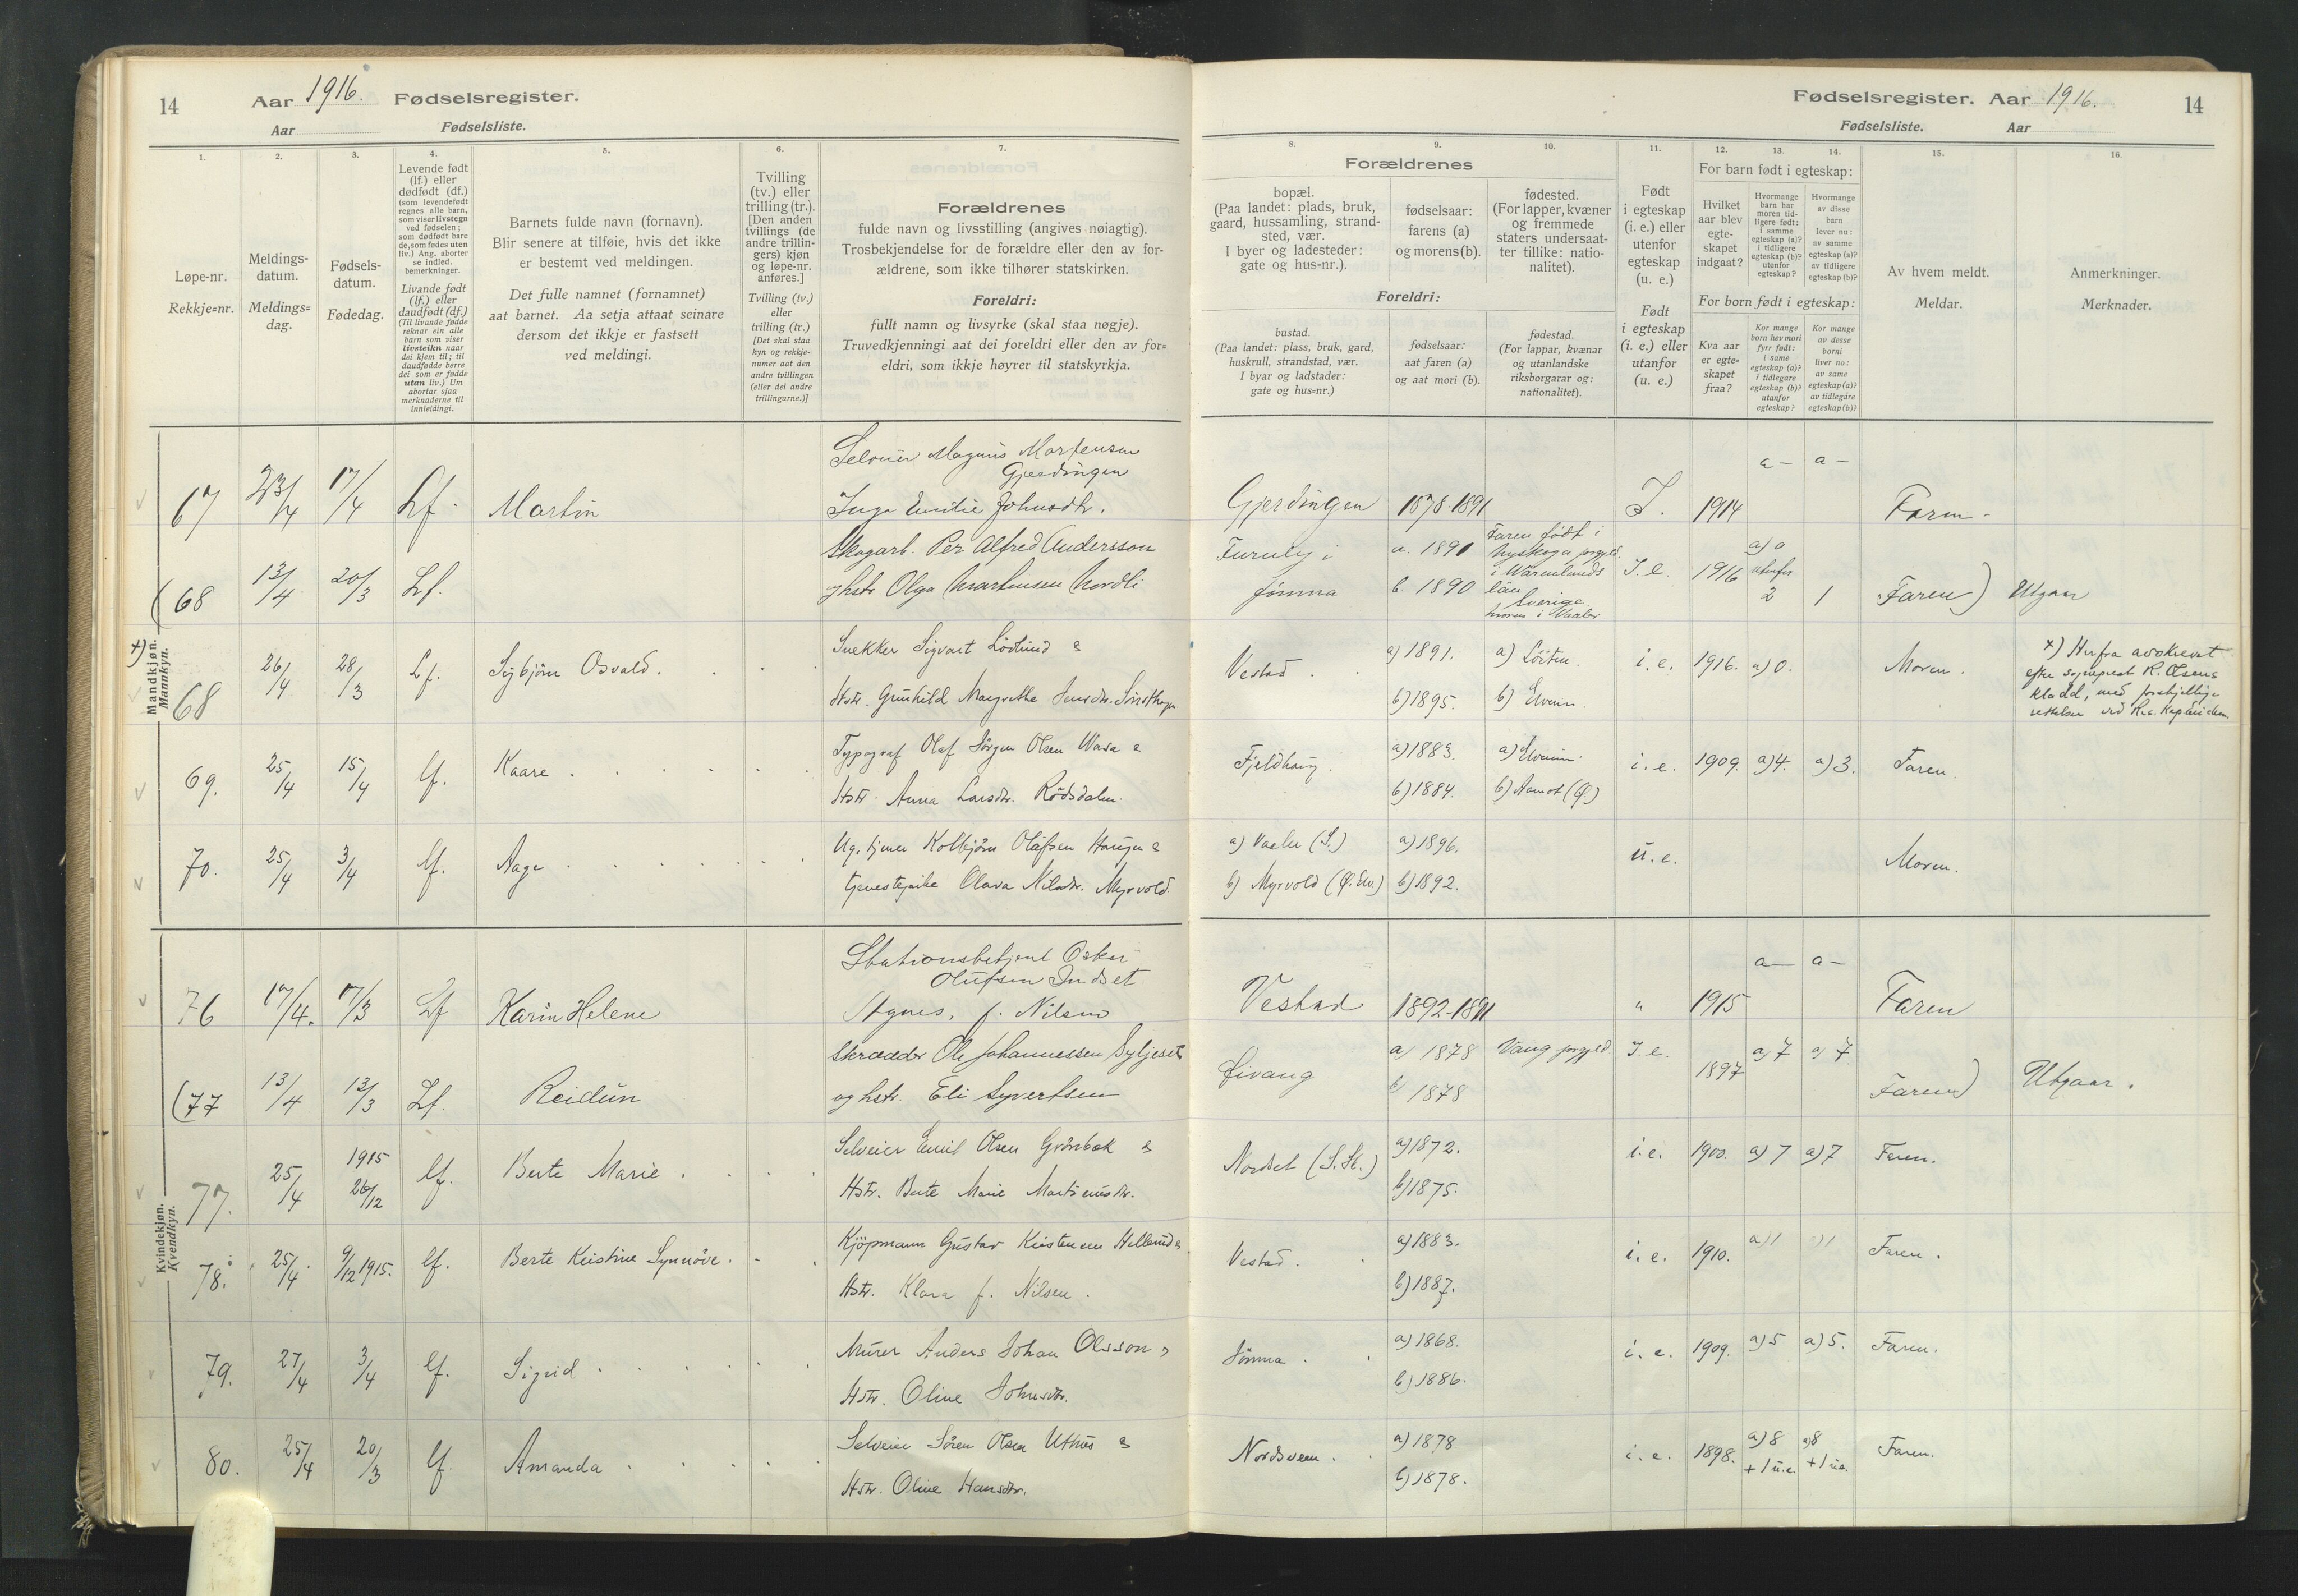 14
Aar 1916. Fødselsregister.
Aar
Fødselsliste.
1.
2.
3.
4.
5.
6.
7.
Løpe-nr.
Rekkje=nr.
Meldings-
datum.
Meldings=
dag.
Fødsels-
datum.
Fødedag.
Levende født
(lf.) eller
dødfødt (df.)
(som levendefødt
regnes alle barn,
som viser livstegn
ved fødselen;
som dødfødt bare
de, som fødes uten
liv.) Ang. aborter
se indled.
bemerkninger.
Livande født
(lf.) eller
daudfødt (df.)
(Til livande fødde
reknar ein alle
barn som viser
livsteikn naar
dei kjem til; til
daudfødde berre
dei som er fødde
utan liv.) Um
abortar sjaa
merknaderne til
innleidingi.
Barnets fulde navn (fornavn).
Blir senere at tilføie, hvis det ikke
er bestemt ved meldingen.
Det fulle namnet (fornamnet)
aat barnet. Aa setja attaat seinare
dersom det ikkje er fastsett
ved meldingi.
Tvilling
(tv.) eller
trilling (tr.).
[Den anden
tvillings (de
andre trillin-
gers) kjøn
og løpe-nr.
anføres.]
Tvilling (tv.)
eller
trilling (tr.)
[Det skal staa
kyn og rekkje-
numer aat den
andre tvillingen
(eller dei andre
trillingarne.)]
Forældrenes
fulde navn og livsstilling (angives nøiagtig).
Trosbekjendelse for de forældre eller den av for-
ældrene, som ikke tilhører statskirken.
Foreldri:
fullt namn og livsyrke (skal staa nøgje).
Truvedkjenningi aat dei foreldri eller den av for=
eldri, som ikkje høyrer til statskyrkja.
Mandkjøn.
Mannkyn.
67 23/4 17/4 Lf. Martin
Selveier Magnus Martensen
Gjerdingen
Inga Emilie Johnsdtr.
(68 13/4 20/3 Lf.
Skogarb. Per Alfred Andersson
og hstr. Olga Martensen Nordli
x)
68 26/4 28/3 Lf. Sigbjørn Osvald.
Snekker Sigvart Lödlund &
Hstr. Gunhild Margrethe Jensdtr.
69. 25/4 15/4 lf. Kaare
Typograf Olaf Jörgen Olsen Wasa &
Hstr. Anna Larsdtr. Rödsdalen.
70. 25/4 3/4 lf. Aage
Ug. tjener Kolbjörn Olafsen Haugen &
tjenestepike Olava Nilsdtr. Myrvold.
Kvindekjøn.
Kvendkyn.
76 17/4. 17/3 Lf Karin Helene
Stationsbetjent Oskar
Olufsen Indset
Agnes, f. Nilsen
(77 13/4 13/3 Lf. Reidun
Skrædder Ole Johannessen Syljeset
og hstr. Eli Syvertsen
77. 25/4 1915 26/12 lf. Berte Marie
Selveier Emil Olsen Grönbæk &
Hstr. Berte Marie Martinusdtr.
78. 25/4. 9/12 1915. lf. Berte Kristine Synnöve.
Kjöpmann Gustav Kristensen Hellund &
Hstr. Klara f. Nilsen.
79. 27/4 3/4 lf. Sigrid
Murer Anders Johan Olsson &
Hstr. Oline Johnsdtr.
80. 25/4 20/3 lf. Amanda
Selveier Sören Olsen Uthus &
Hstr. Oline Hansdtr.
Fødselsregister. Aar 1916. 14
Fødselsliste. Aar
8.
9.
10.
11.
12.
13.
14.
15.
16.
Forældrenes
bopæl.
(Paa landet: plads, bruk,
gaard, hussamling, strand-
sted, vær.
I byer og ladesteder:
gate og hus-nr.).
fødselsaar:
farens (a)
og morens(b).
fødested.
(For lapper, kvæner
og fremmede
staters undersaat-
ter tillike: natio-
nalitet).
Foreldri:
bustad.
(Paa landet: plass, bruk, gard,
huskrull, strandstad, vær.
I byar og ladstader:
gate og hus=nr.)
fødselsaar:
aat faren (a)
og aat mori (b).
fødestad.
(For lappar, kvænar
og utanlandske
riksborgarar og:
nationalitet).
Født
i egteskap
(i. e.) eller
utenfor
egteskap
(u. e.)
Født
i egteskap
(i. e.) eller
utanfor
(u. e.)
For barn født i egteskap:
Hvilket
aar blev
egte-
skapet
indgaat?
Hvormange
barn har
moren tid-
ligere født:
i samme
egteskap (a)?
i tidligere
egteskap (b)?
utenfor
egteskap?
Hvormange
av disse
barn
lever nu:
av samme
egteskap (a)?
av tidligere
egteskap (b)?
For born født i egteskap:
Kva aar
er egte=
skapet
fraa?
Kor mange
born hev mori
fyrr født:
i same
egteskap (a)?
i tidlegare
egteskap (b)?
utanfor
egteskap?
Kor mange
av desse
borni
liver no:
av same
egteskap (a)?
av tidlegare
egteskap (b)?
Av hvem meldt.
Meldar.
Anmerkninger.
Merknader.
Gjerdingen 1878-1891 I. 1914 a — a — Faren.
Furuly i
Jömma
a. 1891
b. 1890
Faren født i
Nyskoga prgjeld
i Wärmlands
län
Sverige
moren i Vaaler
I. e. 1916 a) 0
utenfor
2 1 Faren) Utgaar
Vestad. a) 1891. b) 1895. a) Löiten. b) Elverum i. e. 1916. a) 0. Moren.
x) Herfra avskrevet
efter sogneprest R. Olsens
kladd, med forskjellige
rettelser ved
Fjeldhaug. a) 1883. b) 1884. a) Elverum. b) Aamot (Ö.) i. e. 1909. a) 4. a) 3. Faren.
a) Vaaler (S.) a) 1896. u. e. Moren.
b) Myrvold (Ø. Elv.) b) 1892.
Vestad 1892-1891 " 1915 a — a — Faren
Eivang a) 1878 b) 1878 Vang prgjeld I. e. 1897 a) 7 a) 7 Faren) Utgaar.
Nordset (S. Sk.) a) 1872. b) 1875. i. e. 1900. a) 7 a) 7 Faren.
Vestad. a) 1883. b) 1887. i. e. 1910. a) 1 a) 1 Faren.
Jömna. a) 1868. b) 1886. i. e. 1909. a) 5 a) 5. Faren.
Nordsveen. a) 1878 b) 1878. i. e. 1898. a) 8 + 1 u.e. a) 8 + 1 u.e. Faren.